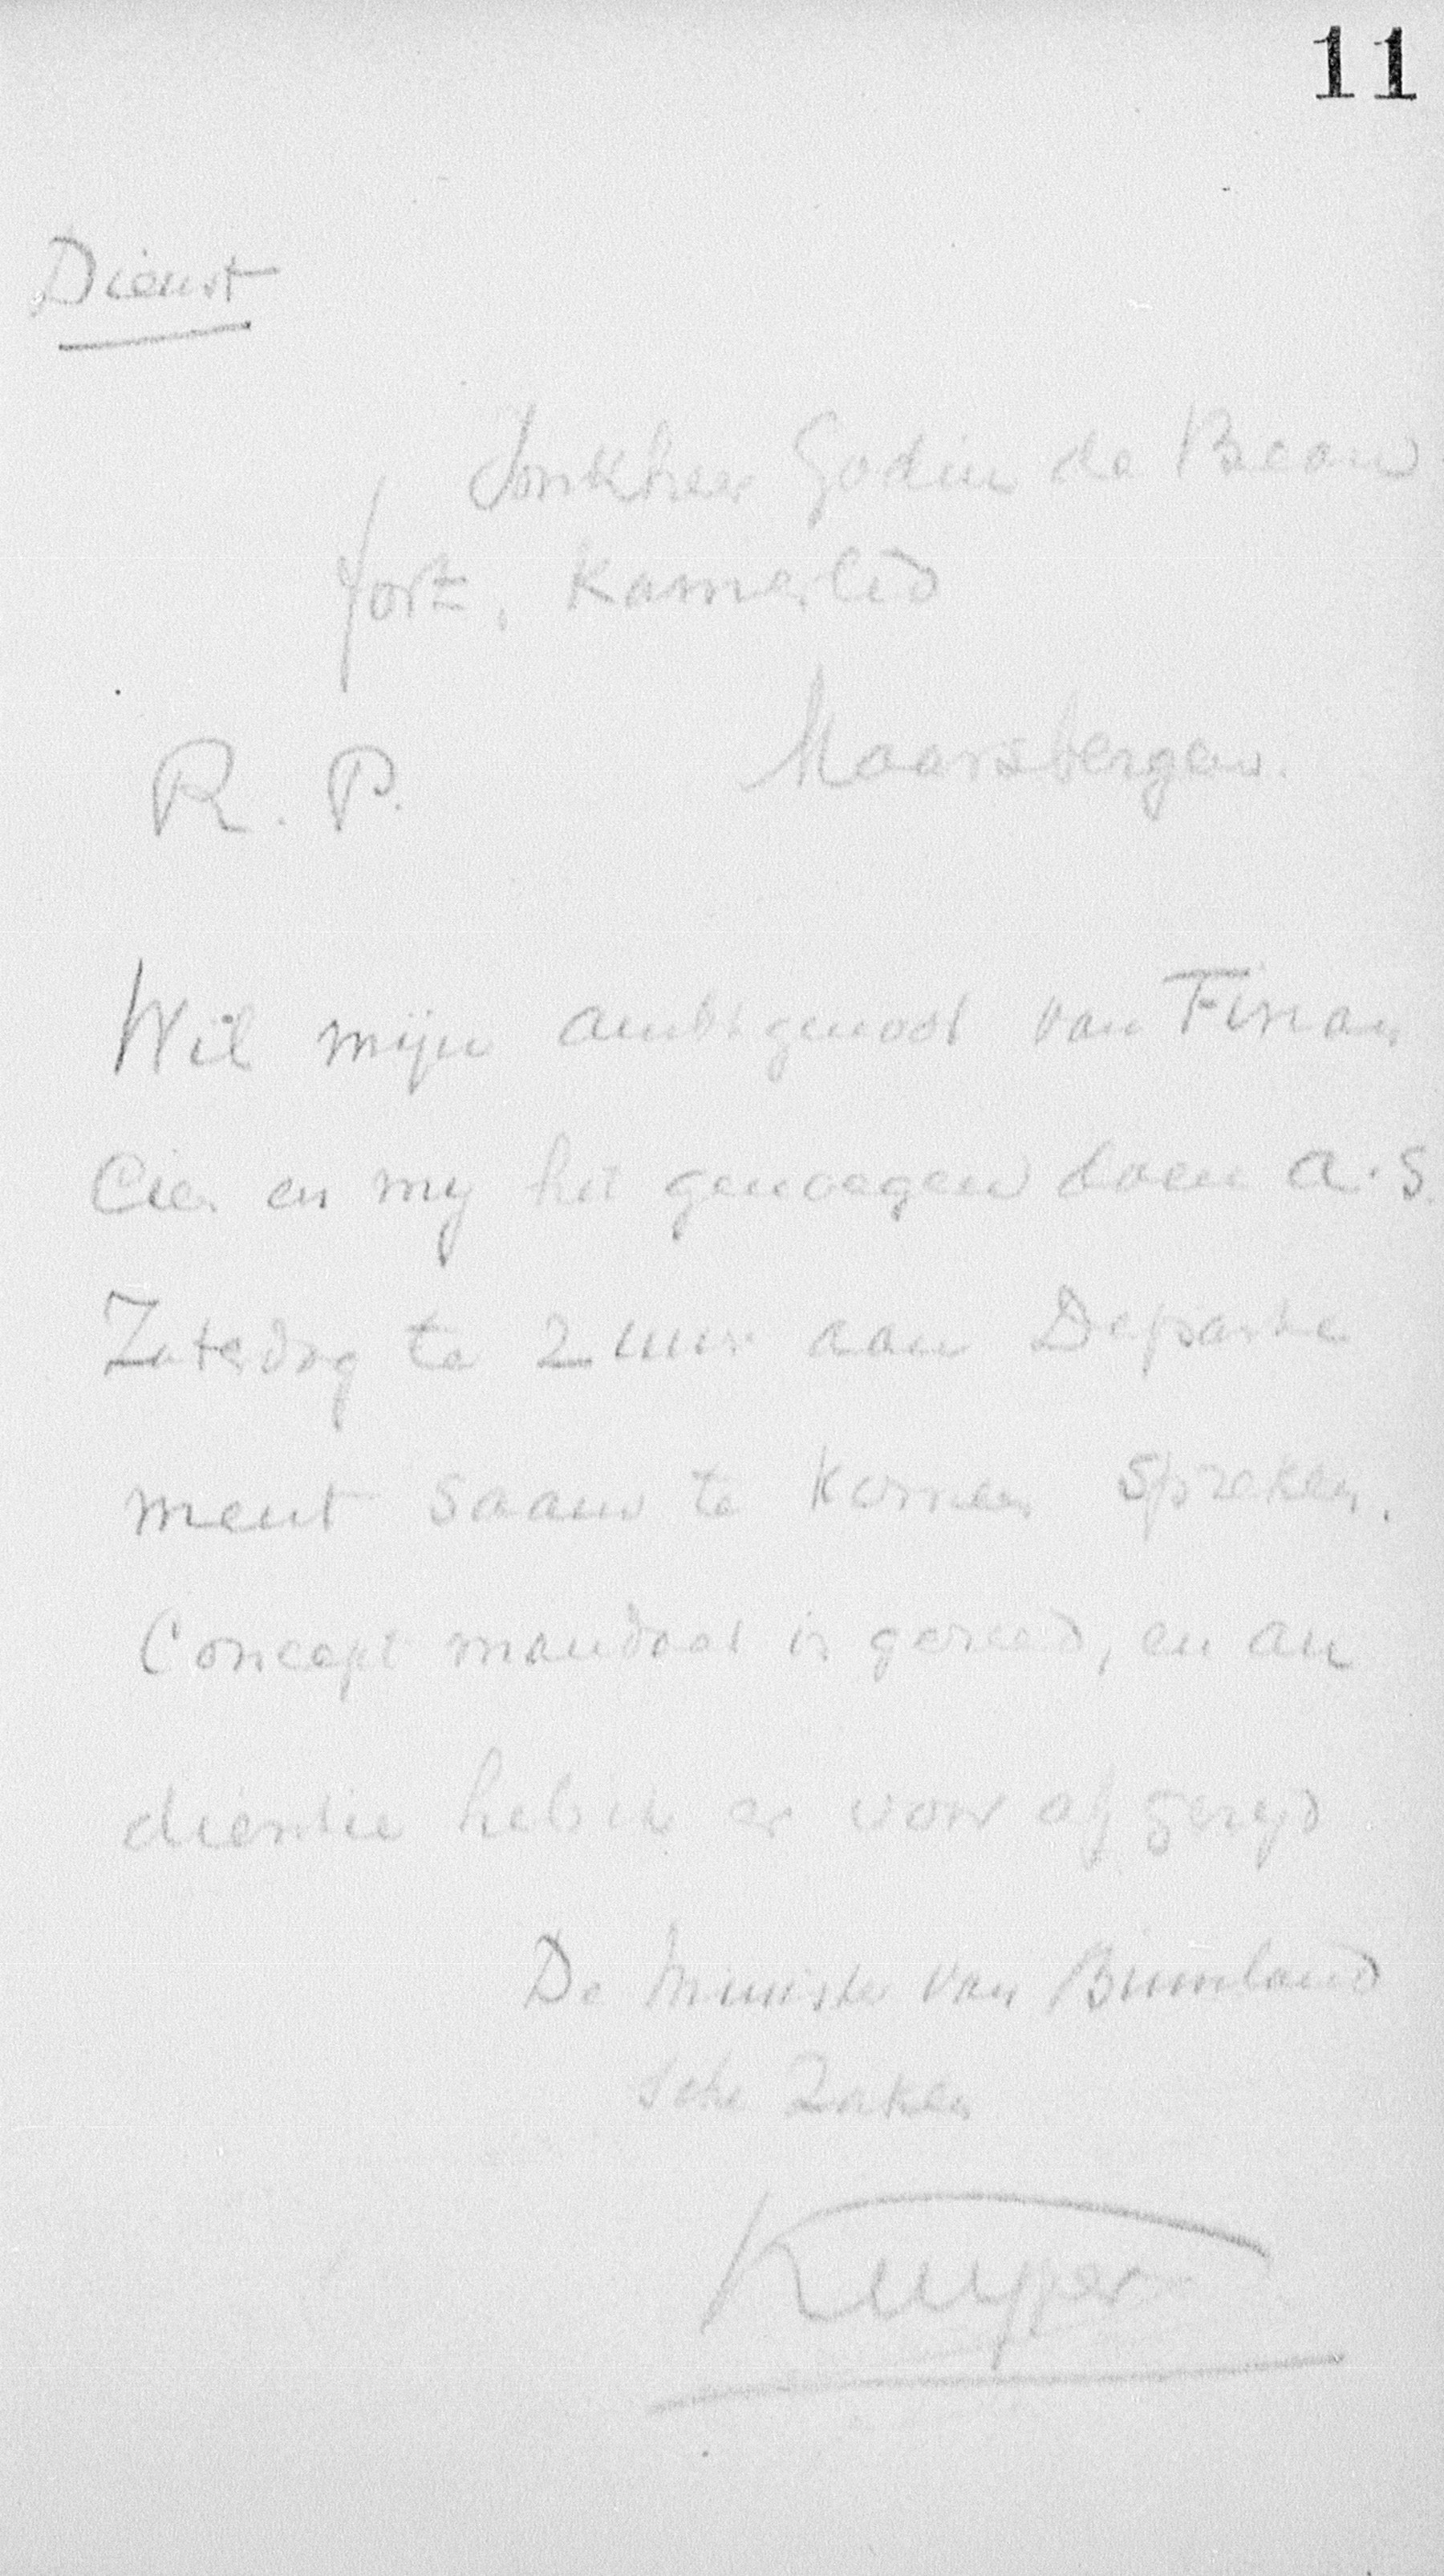 11
Dienst
Jonkheer Godin de Beau
fort, Kamerlid
Maarsbergen.
R. P.
Wil mijn ambtgenoot van Finan
cien en my het genoegen doen a.s.
Zaterdag te 2 uur aan Departe
ment saam te komen spreken.
Concept mandaat is gereed, en au
dientie heb ik er voor afgezegd
De Minister van Binnenland
sche Zaken
Kuyper